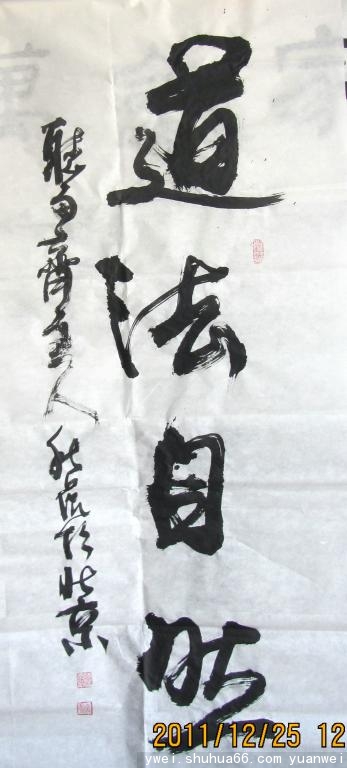 道法自然
聽雨齋主人 秋昆於北京
2011/12/25 12
ywei.shuhua66.com yuanwei